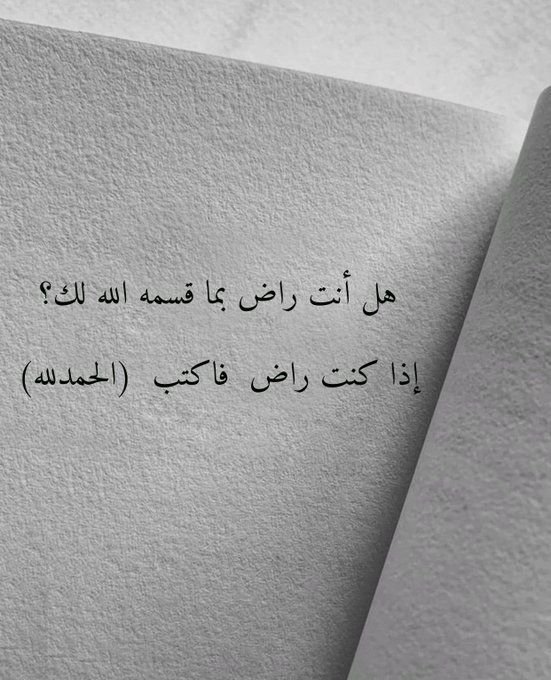 هل أنت راض بما قسمه الله لك؟
إذا كنت راض فاكتب (الحمدلله)